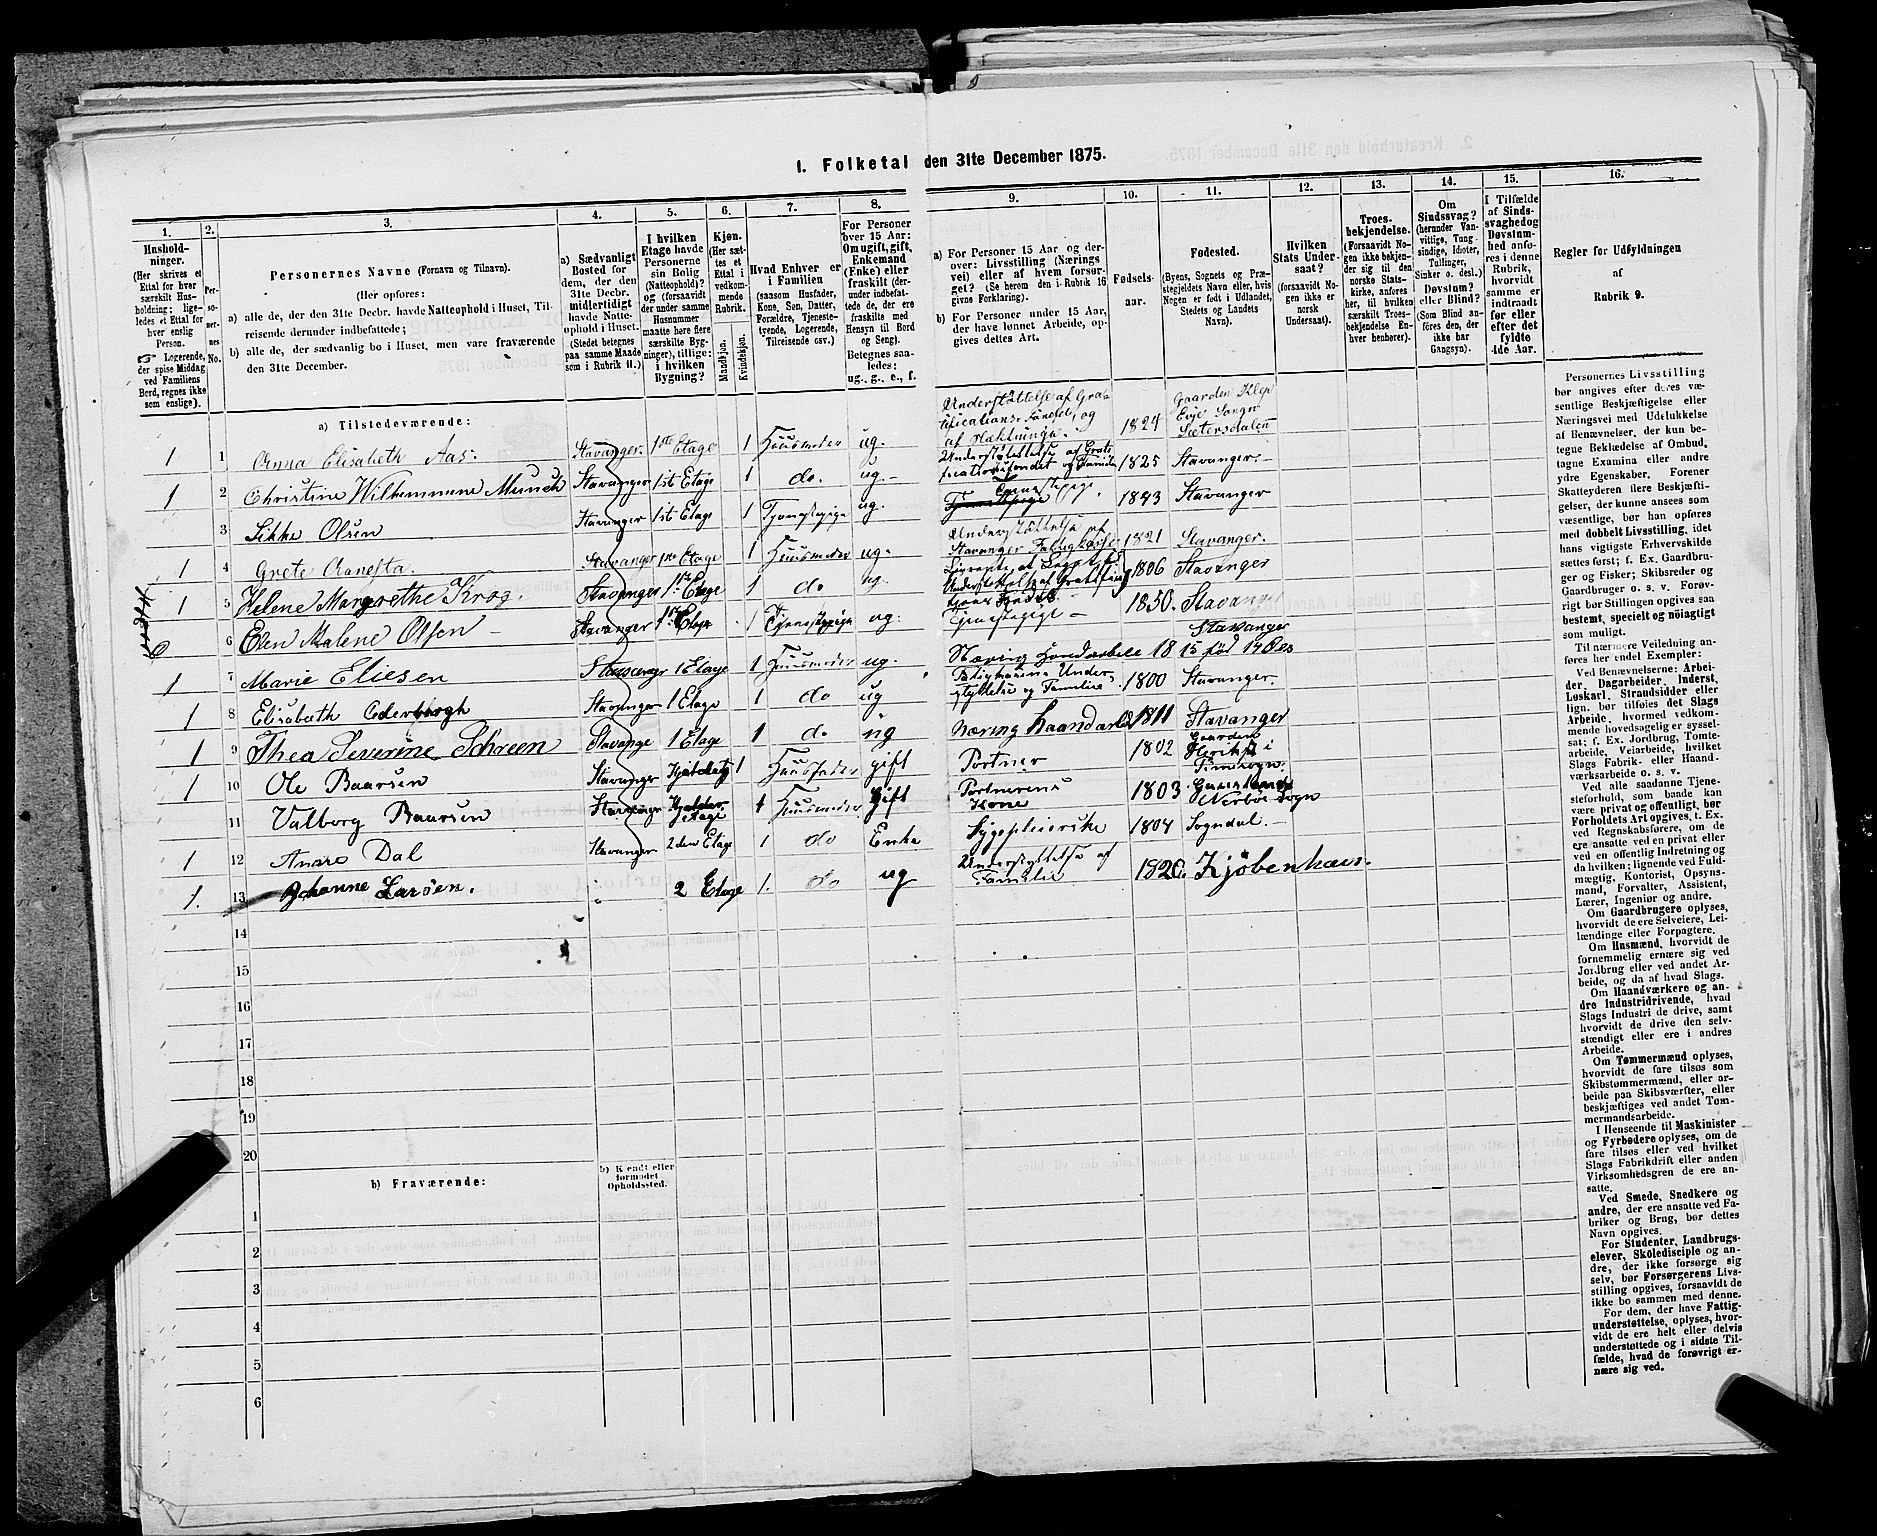 1. Folketal den 31te December 1875.
1. 2. 3. 4. 5. 6. 7. 8. 9. 10. 11. 12. 13. 14. 15. 16.
Husholdninger.
(Her skrives et
Ettal for hver
særskilt Husholdning;
ligeledes et Ettal for
hver enslig
Person.
Logerende,
der spise Middag
ved Familiens
Bord, regnes ikke
som enslige).
Personernes No.
Personernes Navne (Fornavn og Tilnavn).
(Her opføres:
a) alle de, der den 31te Decbr. havde Natteophold i Huset, Tilreisende
derunder indbefattede;
b) alle de, der sædvanlig bo i Huset, men vare fraværende
den 31te December.
a) Sædvanligt
Bosted for
dem, der den
31te Decbr.
midlertidigt
havde Natteophold
i Huset.
(Stedet betegnes
paa samme Maade
som i Rubrik 11.)
I hvilken
Etage havde
Personerne
sin Bolig
(Natteophold)?
og (forsaavidt
der under samme
Husnummer
maatte høre flere
særskilte Bygninger),
tillige:
i hvilken
Bygning?
Kjøn.
(Her sættes
et
Ettal i
vedkommende
Rubrik.
Mandkjøn.
Kvindekjøn.
Hvad Enhver er
i Familien
(saasom Husfader,
Kone, Søn, Datter,
Forældre, Tjenestetyende,
Logerende,
Tilreisende osv.)
For Personer
over 15 Aar:
Om ugift, gift,
Enkemand
(Enke) eller
fraskilt (derunder
indbefattede
de, der ere
fraskilte med
Hensyn til Bord
og Seng).
Betegnes saaledes:
ug., g., e., f.
a) For Personer 15 Aar og derover:
Livsstilling (Næringsvei)
eller af hvem forsørget?
(Se herom den i Rubrik 16
givne Forklaring).
b) For Personer under 15 Aar,
der have lønnet Arbeide, opgives
dettes Art.
Fødselsaar.
Fødested.
(Byens, Sognets og Præstegjeldets
Navn eller, hvis
Nogen er født i Udlandet,
Stedets og Landets
Navn).
Hvilken
Stats Undersaat?
(forsaavidt
Nogen ikke er
norsk
Undersaat).
Troesbekjendelse.
(Forsaavidt Nogen
ikke bekjender
sig til den
norske Statskirke,
anføres
her, til hvilken
særskilt Troesbekjendelse
Enhver
benhører).
Om
Sindssvag?
(herunder Vanvittige,
Tungsindige,
Idioter,
Tullinger,
Sinker o. desl.)
Døvstum?
eller Blind?
(Som Blind anføres
den, der
ikke har
Gangsyn).
I Tilfælde
af Sindssvaghed
og
Døvstumhed
anføres
i denne
Rubrik,
hvorvidt
samme er
indtraadt
før eller
efter det
fyldte
4de Aar.
Regler for Udfyldningen
af
Rubrik 9.
a) Tilstedeværende:
1 1 Anna Elisabeth Aas. Stavanger. 1ste Etage 1 Huusmoder ug. Understøttelse af Gratificationsfondet og af Hæktninga. 1824 Gaarden Klep Evje Sogn Sætersdalen
1 2 Christine Wilhemmine Munch Stavanger 1ste Etage 1 do. ug. Understøttelse af Gratificationsfondet og Familie 1825 Stavanger.
3 Sikke Olsen Stavanger 1ste Etage 1 Tjenestepige ug. Tjenestepige. 1843 Stavanger
1 4 Grete Aanesta. Stavanger 1ste Etage 1 Huusmoder ug. Understøttelse af Stavanger Fattigkasse 1821 Stavanger.
1 5 Helene Margrethe Krog. Stavanger 1ste Etage 1 do ug. 1806 Stavanger
0 6 Elen Malene Olsen Stavanger 1ste Etage 1 Tjenestepige ug. Tjenestepige 1850. Stavanger
1 7 Marie Eliesen Stavanger 1 Etage 1 Huusmoder ug. Næring Haandarbeide 1815 Stavanger
1 8 Elisabeth Oderbørgh Stavanger 1 Etage 1 do ug Understyttelse og Familie 1800 Stavanger.
1 9 Thea Severine Schreen Stavange 1 Etage 1 do ug Næring Haandarbd 1811 Stavanger
1 10 Ole Baarsen Stavanger 1 Huusfader gift Portner 1802 Gaarden i
11 Valborg Baarsen Stavanger Kjelder etage 1 Huusmoder Gift Portnerens Kone 1803 Nerbøe Sogn
1 12 Anara Dal Stavanger 2den Etage 1 do Enke Sygepleierske 1804 Sogndal.
1. 13 Johanne Larsen. 2 Etage 1. do ug Understyttelse af Familie 1820. Kjöbenhavn.
14
15
16
17
18
19
20
b) Fraværende:
b) Kjendt eller
formodet
Opholdssted.
1
2
3
4
5
6
Personernes Livsstilling
bør angives efter deres væsentlige
Beskjæftigelse eller
Næringsvei med Udelukkelse
af Benævnelser, der kun betegne
Beklædelse af Ombud,
tagne Examina eller andre
ydre Egenskaber. Forener
Skatteyderen flere Beskjæftigelser,
der kunne ansees som
væsentlige, bør han opføres
med dobbelt Livsstilling, idet
hans vigtigste Erhvervskilde
sættes først; f. Ex. Gaardbruger
og Fisker; Skibsreder og
Gaardbruger o. s. v. Forøvrigt
bør Stillingen opgives saa
bestemt, specielt og nøiagtigt
som muligt.
Til nærmere Veiledning anføres
her endel Exempler:
Ved Benævnelserne: Arbeider,
Dagarbeider, Inderst,
Løskarl, Strandsidder eller
lign. bør tilføies det Slags
Arbeide, hvormed vedkommende
hovedsagelig er sysselsat;
f. Ex. Jordbrug, Tomtearbeide,
Veiarbeide, hvilket
Slags Fabrik- eller Haandværksarbeide
o. s. v.
Ved alle saadanne Tjenesteforhold,
som baade kan
være privat og offentligt, bør
Forholdets Art opgives, f. Ex.
ved Regnskabsførere, om de
ere ansatte ved en privat eller
ved en offentlig Indretning og
da hvilken; lignende ved Fuldmægtig,
Kontorist, Opsynsmand,
Forvalter, Assistent,
Lærer, Ingeniør og andre.
Om Gaardbrugere oplyses,
hvorvidt de ere Selveiere, Leilændinge
eller Forpagtere.
Om Husmænd, hvorvidt de
fornemmelig ernære sig ved
Jordbrug eller ved andet Arbeide,
og da af hvad Slags.
Om Haandværkere og andre
Industridrivende, hvad
Slags Industri de drive, samt
hvorvidt de drive den selvstændigt
eller ere i andres
Arbeide.
Om Tømmermænd oplyses,
hvorvidt de fare tilsøs som
Skibstømmermænd, eller arbeide
paa Skibsværfter, eller
beskjæftiges ved andet Tømmermandsarbeide.
I Henseende til Maskinister
og Fyrbødere oplyses, om de
fare tilsøs eller ved hvilket
Slags Fabrikdrift eller anden
Virksomhedsgren de ere ansatte.
Ved Smede, Snedkere og
andre, der ere ansatte ved Fabriker
og Brug, bør dettes
Navn opgives.
For Studenter, Landbrugselever,
Skoledisciple og andre,
der ikke forsørge sig
selv, bør Forsørgerens Livsstilling
opgives, forsaavidt de
ikke bo sammen med denne.
For dem, der have Fattigunderstøttelse,
oplyses, hvorvidt
de ere helt eller delvis
understøttede og i sidste Tilfælde,
hvad de forøvrigt ernære
sig ved.